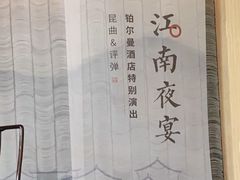 江南夜宴
铂尔曼酒店特别演出
昆曲&评弹